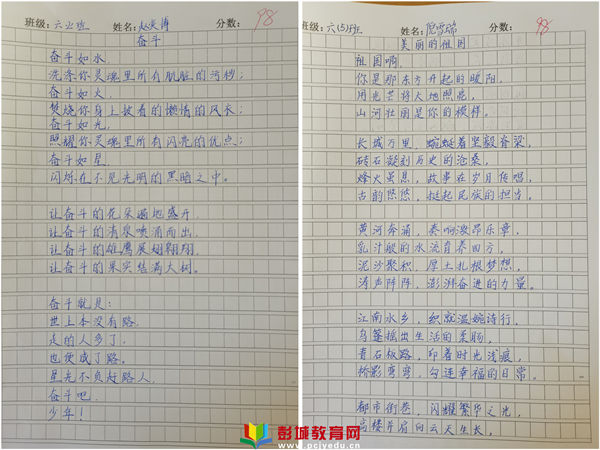 班级：六
班
姓名：
分数：
98
奋斗
奋斗如水，
洗涤你灵魂里所有肮脏的污秽；
奋斗如火，
焚烧你身上披着的懒惰的风衣；
奋斗如光，
照耀你灵魂里所有闪亮的优点；
奋斗如星，
闪烁在不见光明的黑暗之中。
让奋斗的花朵遍地盛开，
让奋斗的清泉喷涌而出，
让奋斗的雄鹰展翅翱翔，
让奋斗的果实结满大树。
奋斗就是：
世上本没有路，
走的人多了，
也便成了路。
星光不负赶路人，
奋斗吧，
少年！
班级：六(5)班
姓名：
雪瑞
分数：
98
美丽的祖国
祖国啊，
你是那东方升起的暖阳，
用光芒将大地照亮，
山河壮丽是你的模样。
长城万里，蜿蜒着坚毅脊梁，
砖石凝刻历史的沧桑，
烽火虽息，故事在岁月传唱，
古韵悠悠，挺起民族的担当。
黄河奔涌，奏响激昂乐章，
乳汁般的水流育养四方，
泥沙聚积，厚土扎根梦想，
涛声阵阵，澎湃奋进的力量。
江南水乡，织就温婉诗行，
乌篷摇出生活的柔肠，
青石板路，印着时光浅痕，
桥影弯弯，勾连幸福的日常。
都市街巷，闪耀繁华之光，
高楼并肩向云天生长，
彭城教育网
www.pcjyedu.cn